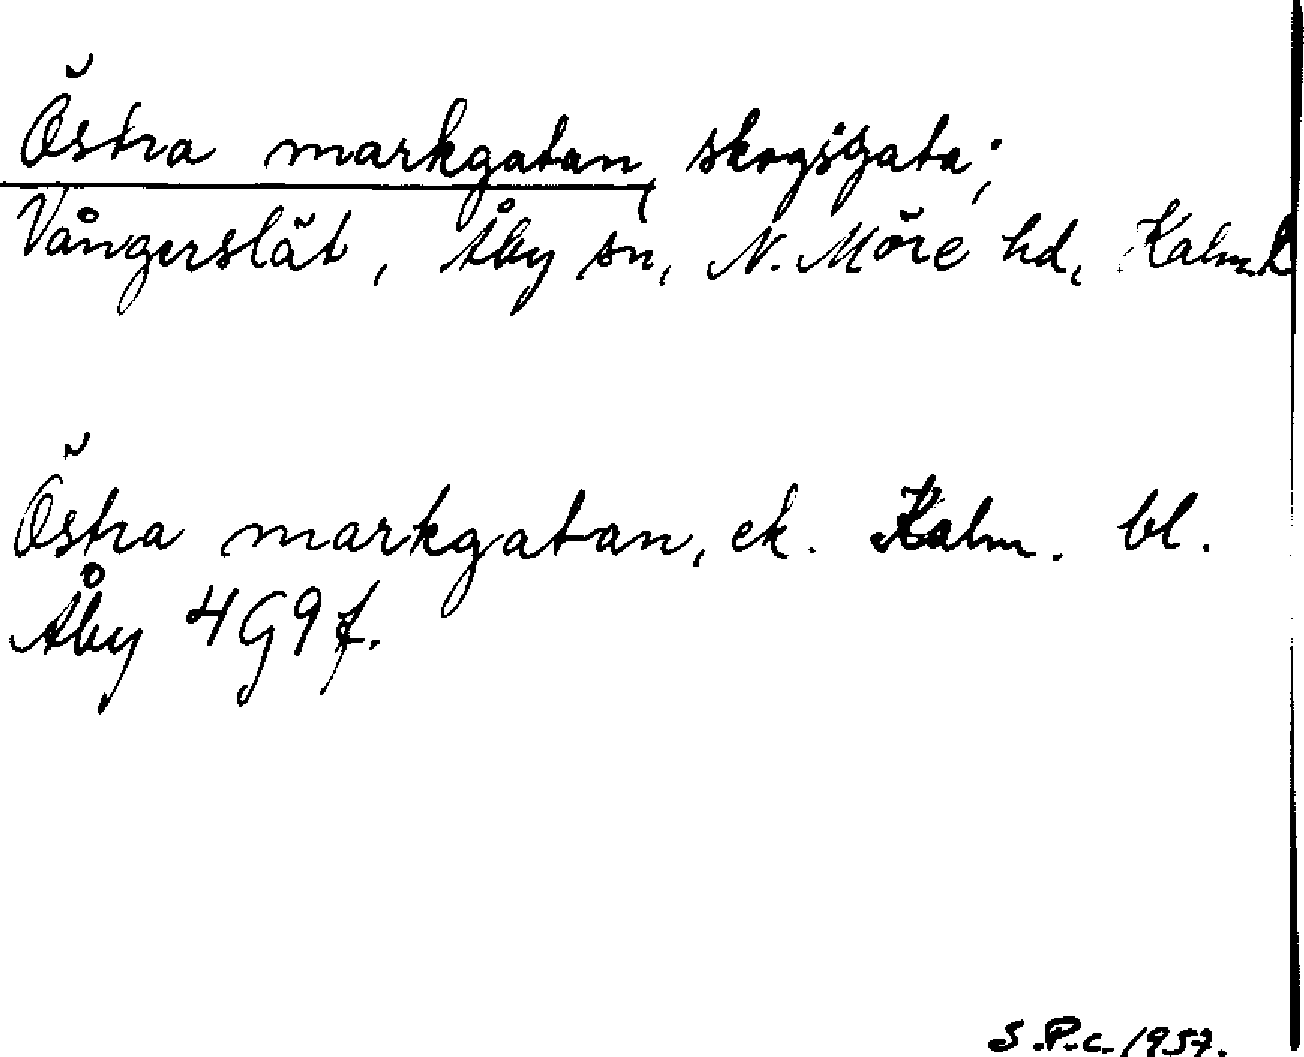 Östra markgatan, skogsgata;
Vångerslät, Åby sn, N. Möre hd, Kalm. L
Östra markgatan, ek. Kalm. bl.
Åby 4G9f.
S.P.c. 1957.